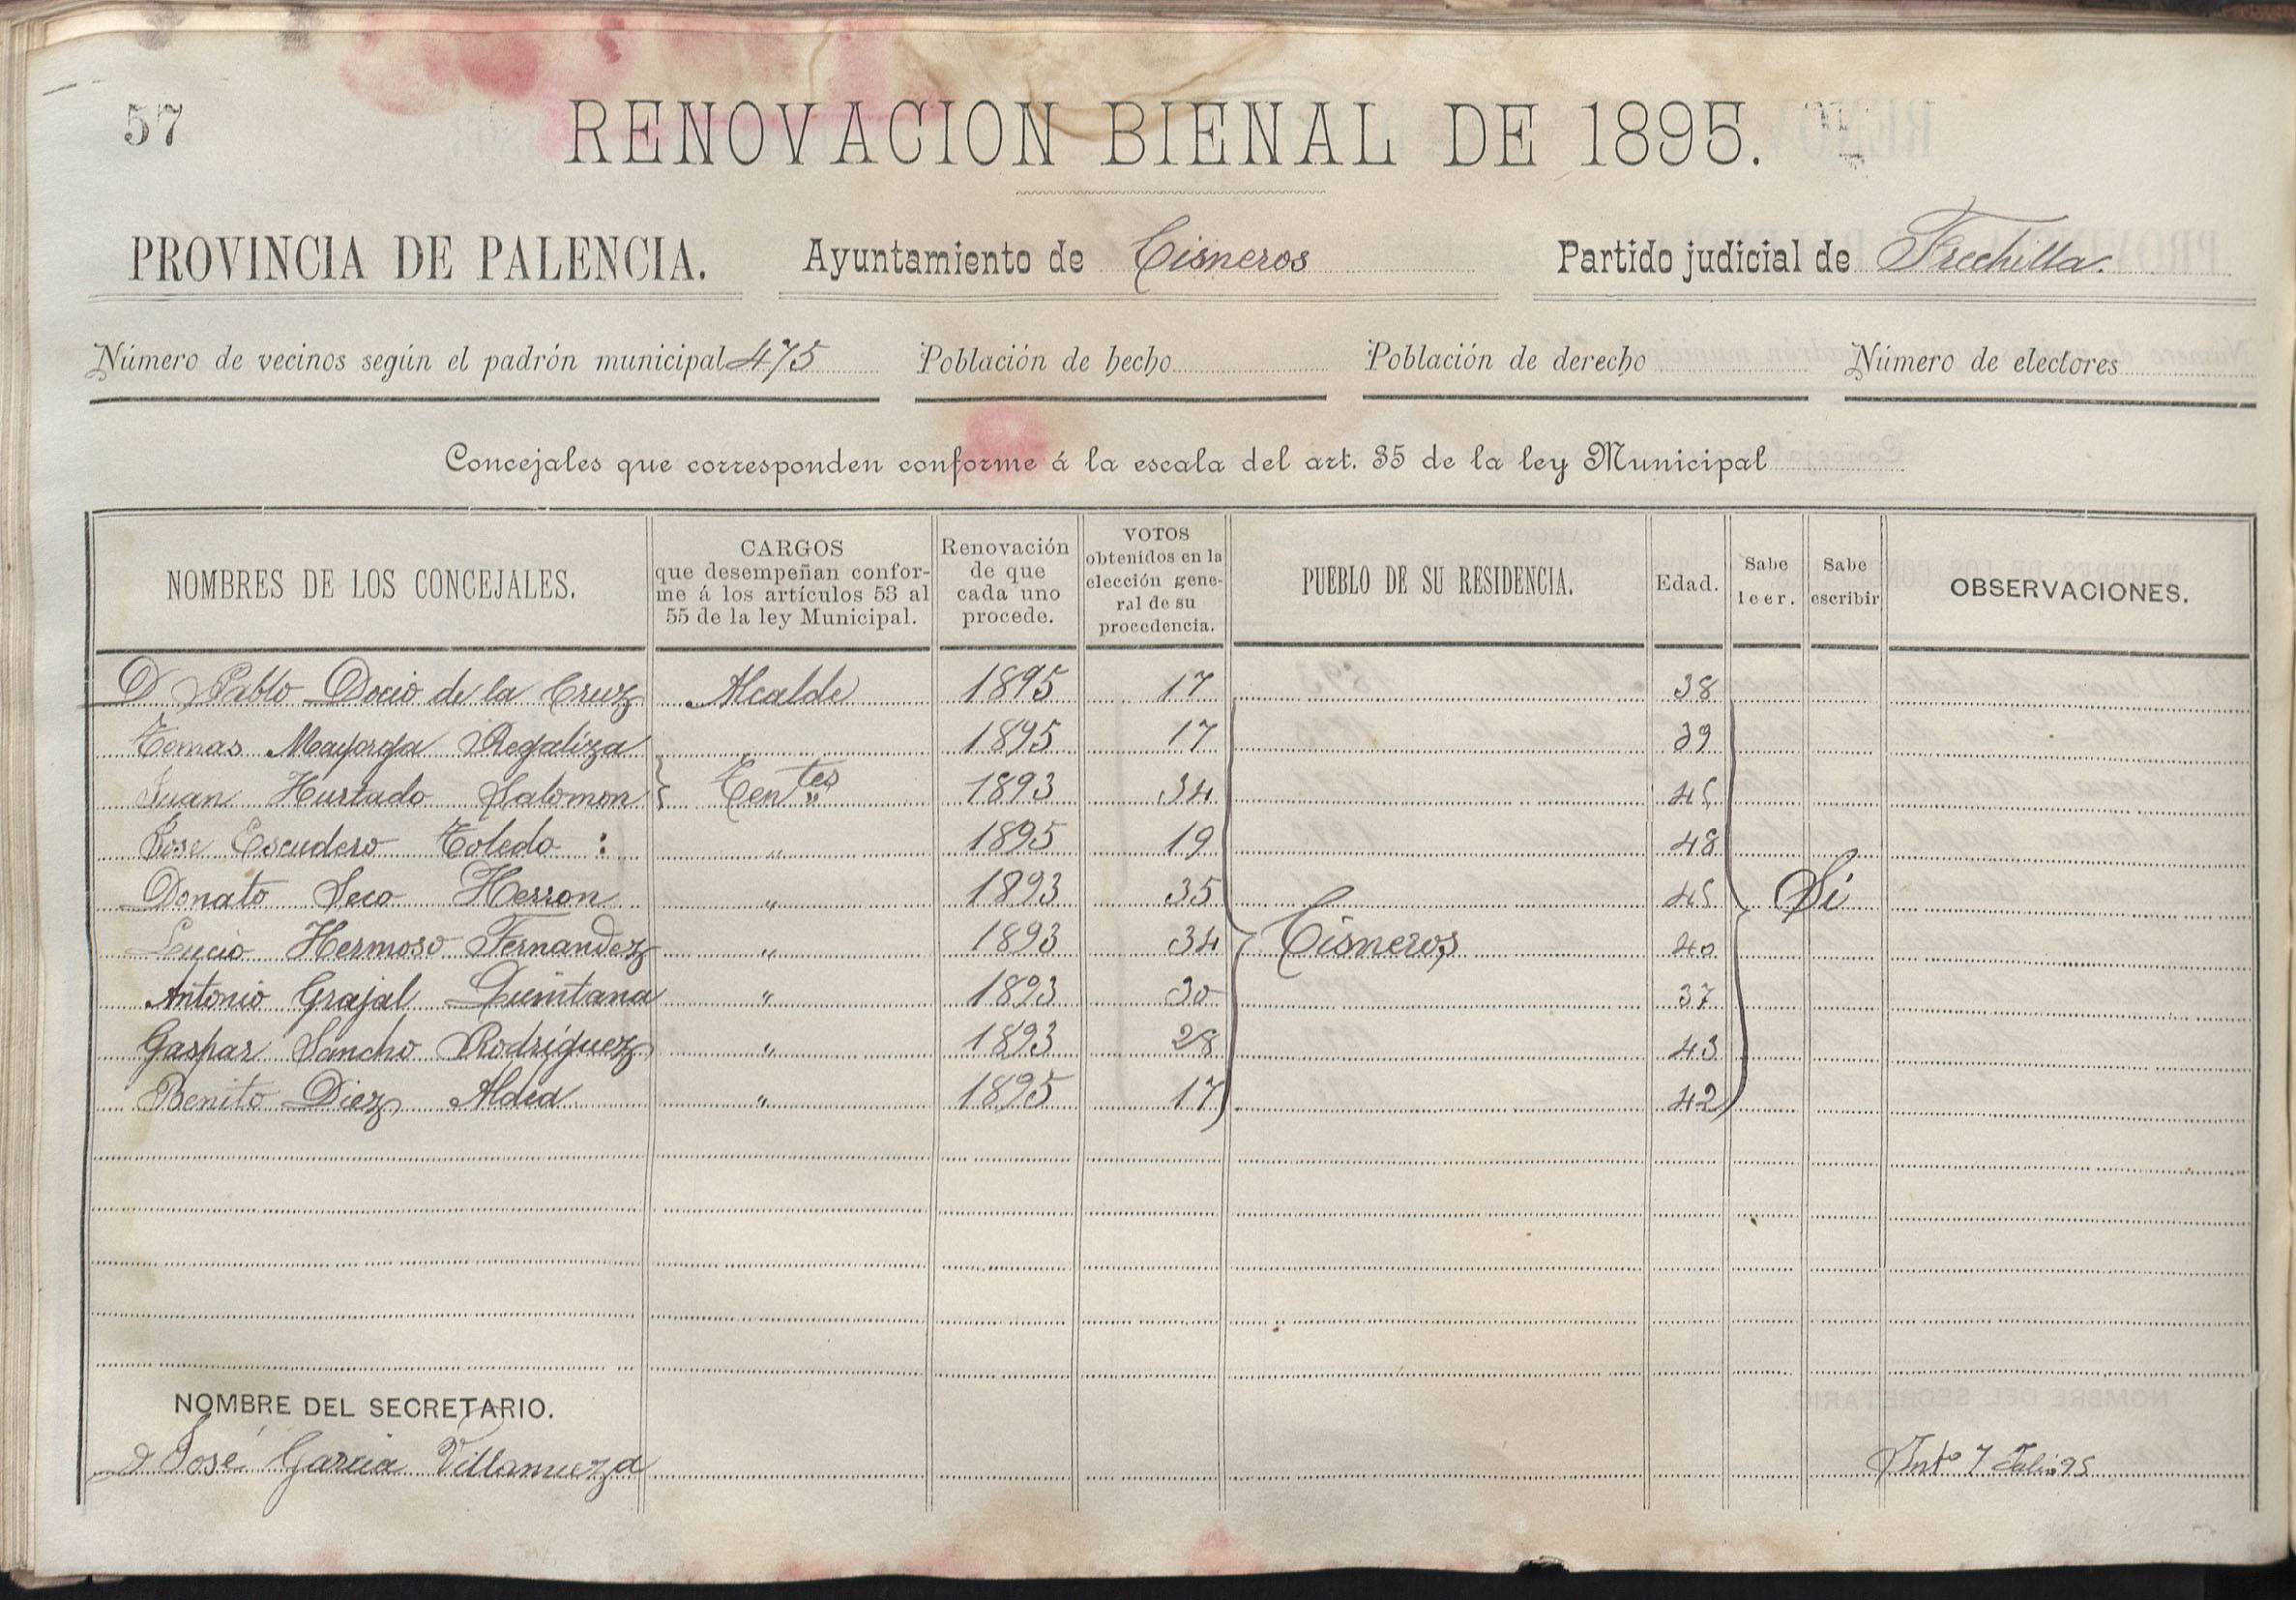 57
RENOVACION BIENAL DE 1895.
PROVINCIA DE PALENCIA. Ayuntamiento de Cisneros Partido judicial de Frechilla.
Número de vecinos según el padrón municipal 475 Población de hecho Población de derecho Número de electores
Concejales que corresponden conforme á la escala del art. 35 de la ley Municipal
NOMBRES DE LOS CONCEJALES. CARGOS que desempeñan conforme á los artículos 53 al 55 de la ley Municipal. Renovación de que cada uno procede. VOTOS obtenidos en la elección general de su procedencia. PUEBLO DE SU RESIDENCIA. Edad. Sabe leer. Sabe escribir OBSERVACIONES.
D Pablo Docio de la Cruz Alcalde 1895 17 38
Tomas Mayorga Regaliza 1895 17 39
Juan Hurtado Salomon } Tentes 1893 34 45
Jose Escudero Toledo : " 1895 19 48
Donato Seco Herron " 1893 35 45 Si
Lucio Hermoso Fernandez " 1893 34 Cisneros 40
Antonio Grajal Quintana " 1893 30 37
Gaspar Sancho Rodríguez " 1893 28 43
Benito Diez Aldea " 1895 17 42
NOMBRE DEL SECRETARIO.
D José Garcia Villamuza
7 Julio 95